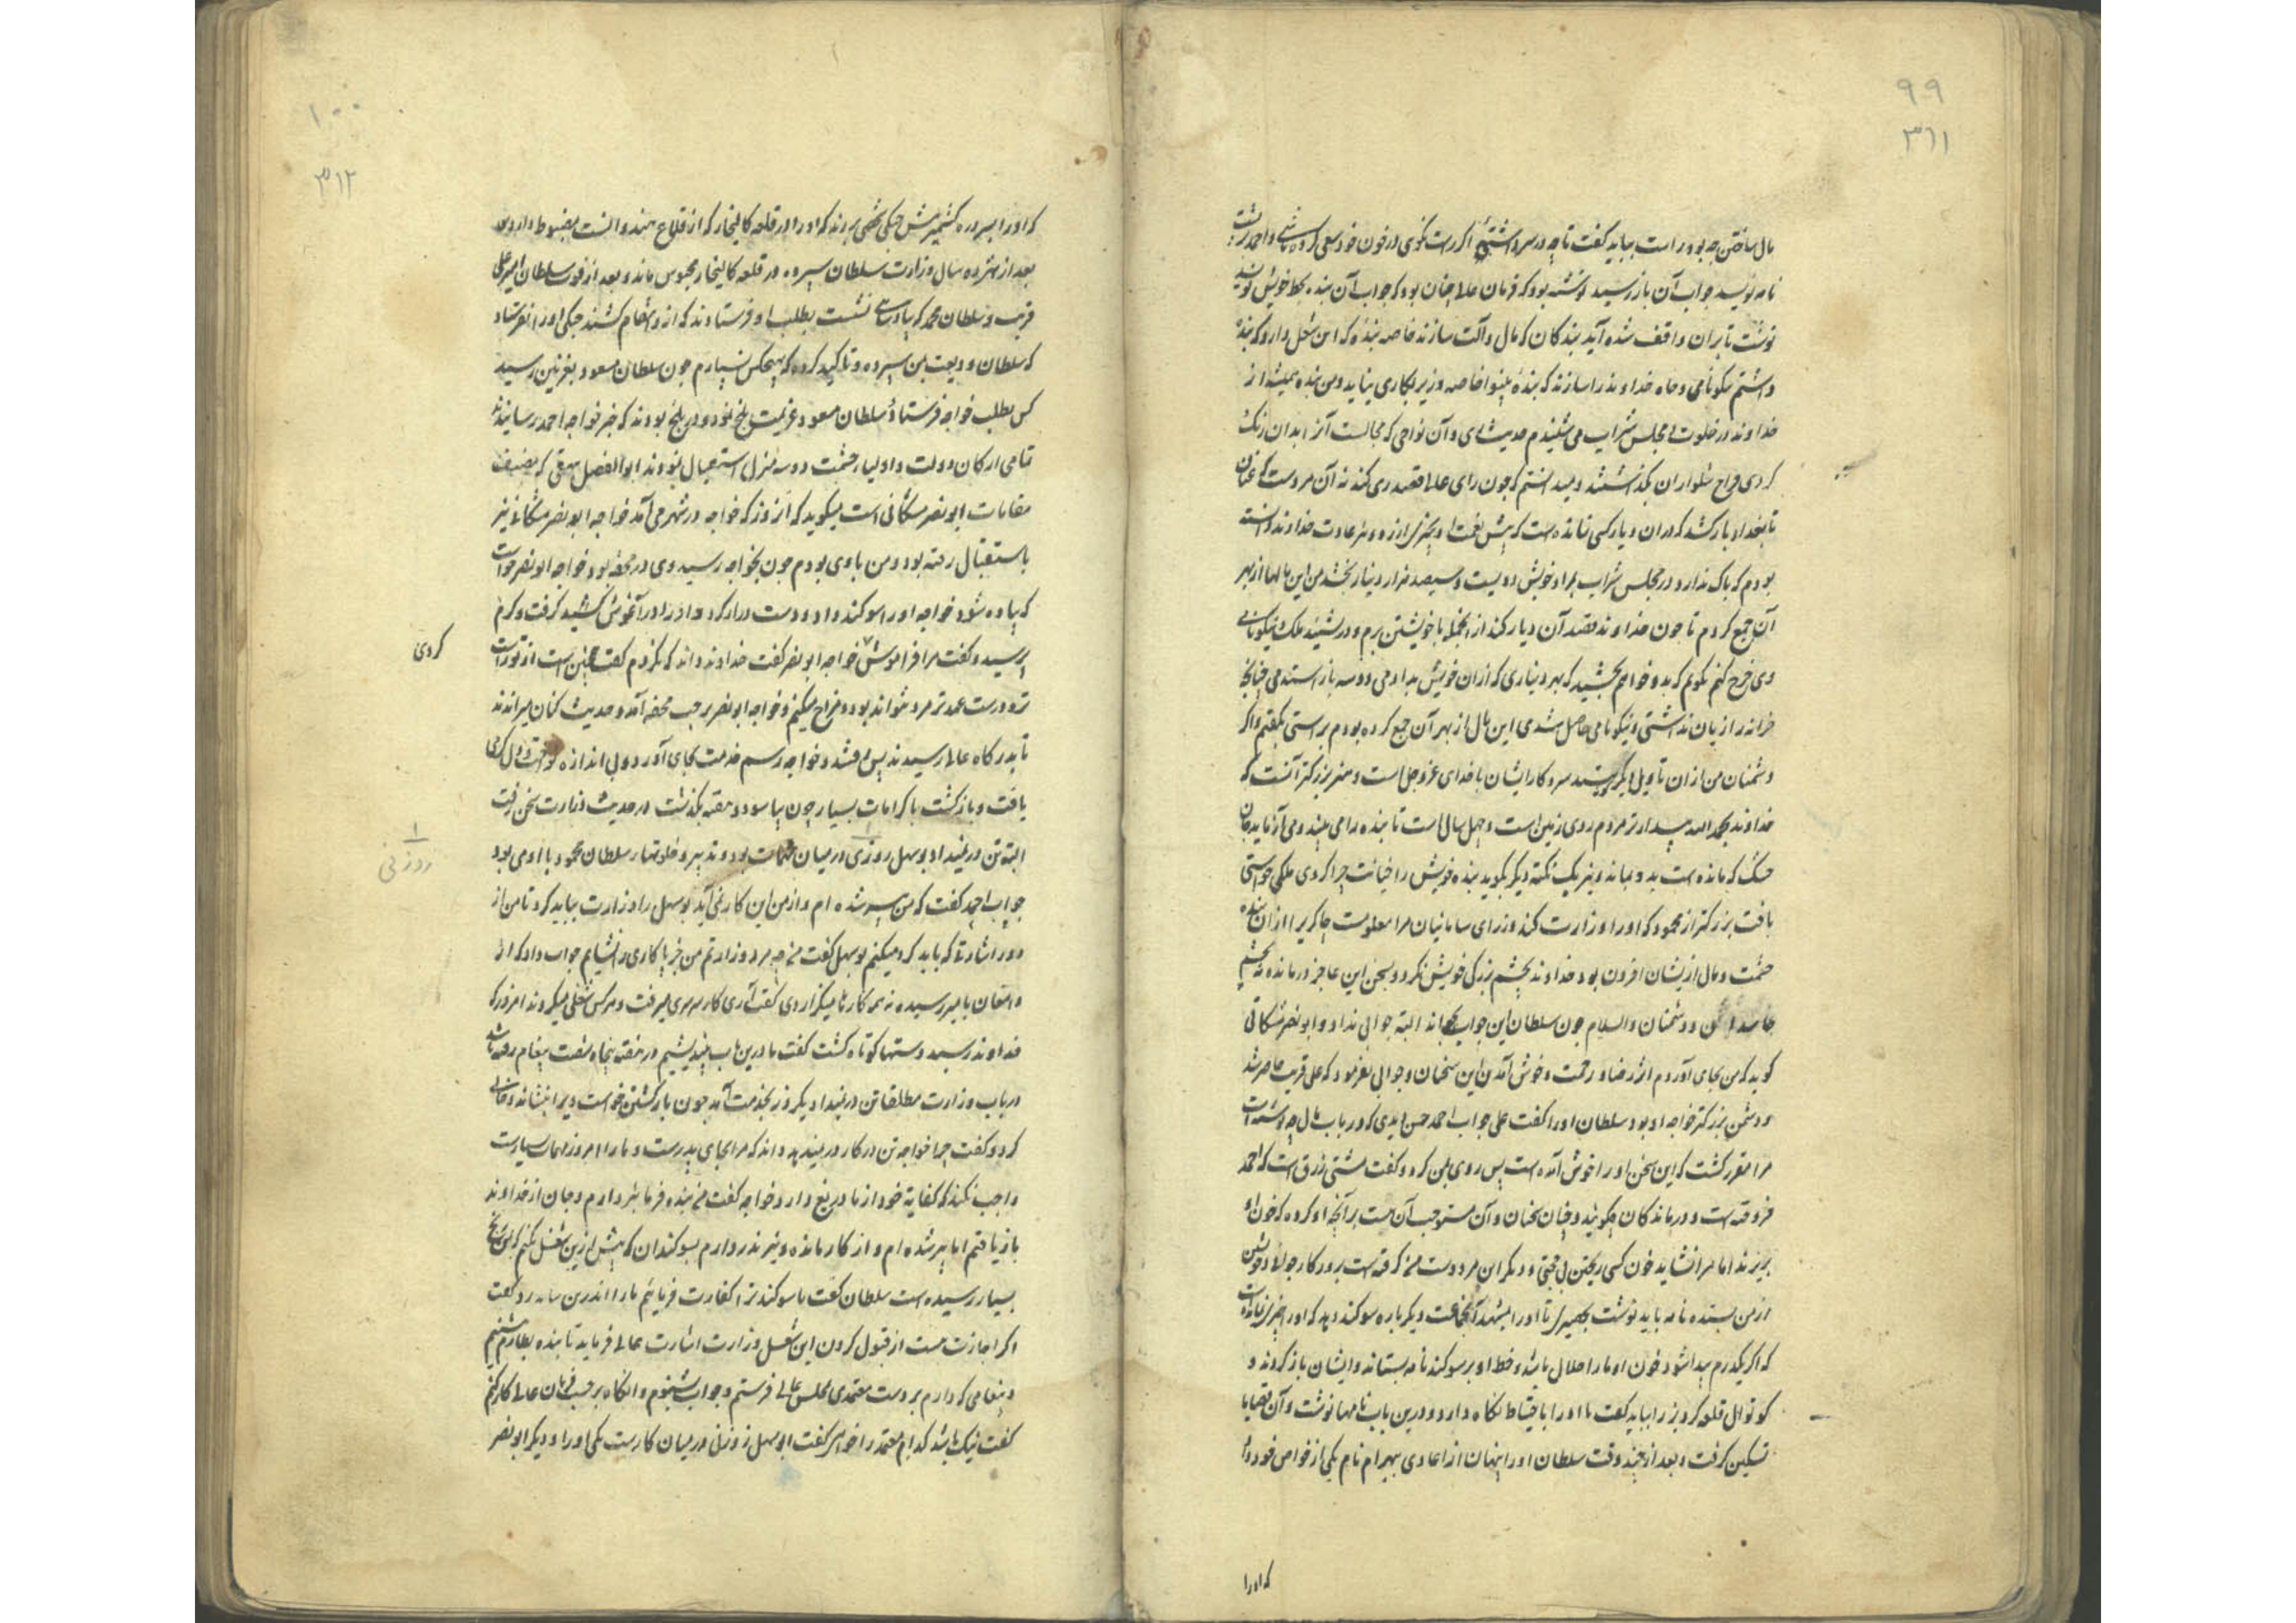 ۹۹
۳۶۱
مال ساختن چه بود راست بباید گفت تا چه در سر داشتهٔ اگر راست نگوی در خون خود سعی کرده باشی و احمد برپشت
نامه نویسد جواب آن باز رسید نوشته بود که فرمان عالی چنان بود که جواب آن بنده بخط خویش نویسد
نوشت تا بران واقف شده آید بندکان که مال و آلت سازند خاصه بنده که این شغل دارد که بنده
داشتم نیکونامی و جاه خداوند را سازند که بندهٔ بینوا خاصه وزیر بکاری نیاید و من بنده همیشه از
خداوند در خلوت و مجلس شراب می شنیدم حدیث ری و آن نواحی که مجالست آنرا بدان رنک
کردی و خراج شلواران بکذاشتند و میدانستم که چون رای عالی قصد ری کند نه آن مردست که عنان
تا بغداد بازکشد که دران دیار کسی نمانده است که پیش نعمت او چیزی ارزد و نیز عادت خداوند دانسته
بودم که باک ندارد در مجلس شراب بمراد خویش دویست و سیصد هزار دینار بخشد من این مالها از بهر
آن جمع کردم تا چون خداوند قصد آن دیار کند از انجمله با خویشتن برم و در نشید ملک و نیکونامی
وی خرج کنم نگویم که بدو خواهم بخشید که بهر دیناری که از ان خویش بدادمی دو سه باز استدمی چنانچه
خزانه را زیان نداشتی و نیکونامی حاصل شدی این مال از بهر آن جمع کرده بودم براستی بگفتم و اگر
دشمنان من ازان تاویل دیگر کنند سر و کار ایشان با خدای عز و جل است و هنر بزرکتر آنست که
خداوند بحمد الله بیدارتر مردم روی زمین است و چهل سال است تا بنده را می بیند و می آزماید جان
خشک که مانده است بدو بماند و نیز یک نکته دیگر بکوید بنده خویش را خیانت چرا کردی ملکی خواستی
یافت بزرکتر از محمود که او را وزارت کند وزرای سامانیان مرا معلومست چاکر یرا ازان بنده
حشمت و مال ازیشان افزون بود خداوند بچشم بزرکی خویش نکرد و بسخن این عاجز درمانده نه بچشم
حاسدان و دشمنان والسلام چون سلطان این جواب بخواند البته جوابی نداد و ابونصر مشکانی
کوید که من بجای آوردم اثر رضا و رحمت و خوش آمدن این سخنان و جوابی نفرمود که علی قریب حاضر شد
و دشمن بزرکتر خواجه او بود سلطان او را گفت علی جواب احمد حسن دیدی که در باب مال چه نوشته است
مرا مقرر گشت که این سخن او را خوش آمده است پس روی بمن کرد و گفت مشتی زرق است که احمد
فروخته است و درماندکان چکونند و چنان سخنان و آن مستوجب آن هست بر آنچه او کرده که خون او
بریزند اما مرا نشاید خون کسی ریختن بی حجتی و دیگر این مرد دوست من گرفته است بروزکار جوانی و خویشتن
از من بستده نامه باید نوشت تا او را بمشهد آنجماعت دیگر باره سوکند دهد که او را چیزی نمانده است
که اگر یکدرم پیدا شود خون او ما را حلال باشد و خط او بر سوکند نامه بستاند و ایشان بازگردند و
کوتوال قلعه کردیز را بباید گفت تا او را باحتیاط نگاه دارد و درین باب نامها نوشت و آن قضایا
تسکین گرفت و بعد از چند وقت سلطان او را پنهان از اعادی بهرام نام یکی از خواص خود داد
که او را
۱۰۰
۳۶۲
که او را ببر دره کشمیر پیش جنکی مخفی بردند که او را در قلعه کالنجار که از قلاع هندوانست مضبوط دارد پس
بعد از هژده سال وزارت سلطان سپرده در قلعه کالنجار محبوس ماند و بعد از فوت سلطان امیر علی
قریب و سلطان محمد که بپادشاهی نشست بطلب او فرستادند که از و انتقام کشند جنکی او را نفرستاد
که سلطان ودیعت بمن سپرده و تاکید کرده که بهیچکس نسپارم چون سلطان مسعود بغزنین رسید
کس بطلب خواجه فرستاد و سلطان مسعود عزیمت بلخ نمود و در بلخ بودند که خبر خواجه احمد رسانیدند
تمامی ارکان دولت و اولیاء حشمت دو سه منزل استقبال نمودند ابوالفضل بیهقی که مصنف
مقامات ابونصر مشکانی است میکوید که آنروز که خواجه در شهر می آمد خواجه ابونصر مشکانی نیز
باستقبال رفته بود و من با وی بودم چون بخواجه رسید وی در محفه بود خواجه ابونصر خواست
که پیاده شود خواجه او را سوکند داد و دست دراز کرد و او را در آغوش کشید گرفت و کرم
پرسید و گفت مرا فراموش خواجه ابونصر گفت خداوند داند که نکردم گفت چنین است از تو راست
کردی
تر و درست عهدتر مرد نتواند بود و مزاح میکنم و خواجه ابونصر بر جنب محفه آمد و حدیث کنان میراندند
تا بدرکاه عالی رسیدند پیش رفتند و خواجه رسم خدمت بجای آورد و بی اندازه نواخت و دل گرمی
یافت و بازگشت با کرامات بسیار چون بیاسود و هفته بگذشت در حدیث وزارت سخن رفت
البته تن درنمیداد بوسهل روزنی در میان مهمات بود و تدبیر و خلوتها سلطان محمود با او می بود
روزنی
جواب احمد گفت که من پیر شده ام و از من این کار نمی آید بوسهل را وزارت بباید کرد تا من از
دور اشارتی که باید کرد میکنم بوسهل گفت من چه مرد وزارتم من جز پا کاری را نشایم جواب داد که از
دامغان با میر رسیده نه همه کارها میکزاردی گفت آری کار سرسری میرفت و هر کس شغلی میکردند امروز که
خداوند رسید دستها کوتاه گشت گفت تا درین باب بیندیشیم در هفته پنجاه شصت پیغام رفته باشد
در باب وزارت مطلقا تن درنمیداد یکروز بخدمت آمد چون بازگشتن خواست ویرا بنشاند و خالی
کرد و گفت چرا خواجه تن در کار درنمیدهد داند که مرا بجای پدرست و ما را امروز مهمات بسیارست
واجب نکند که کفایه خود از ما دریغ دارد خواجه گفت من بنده فرمانبردارم و جان از خداوند
باز یافتم اما پیر شده ام و از کار مانده و نیز نذر دارم بسوکندان که بیش ازین شغل نکنم که بمن رنج
بسیار رسیده است سلطان گفت ما سوکند ترا کفارت فرمائیم ما را اندرین نباید رد گفت
اگر اجازت هست از قبول کردن این شغل وزارت اشارت عالی فرماید تا بنده بطارم نشینم
و پیغامی که دارم بر دست معتمدی بمجلس عالی فرستم و جواب بشنوم و انکاه بر حسب فرمان عالی کار کنم
گفت نیک باشد کدام معتمد را خواهی گفت ابوسهل زوزنی در میان کارست یکی او را و دیگر ابونصر